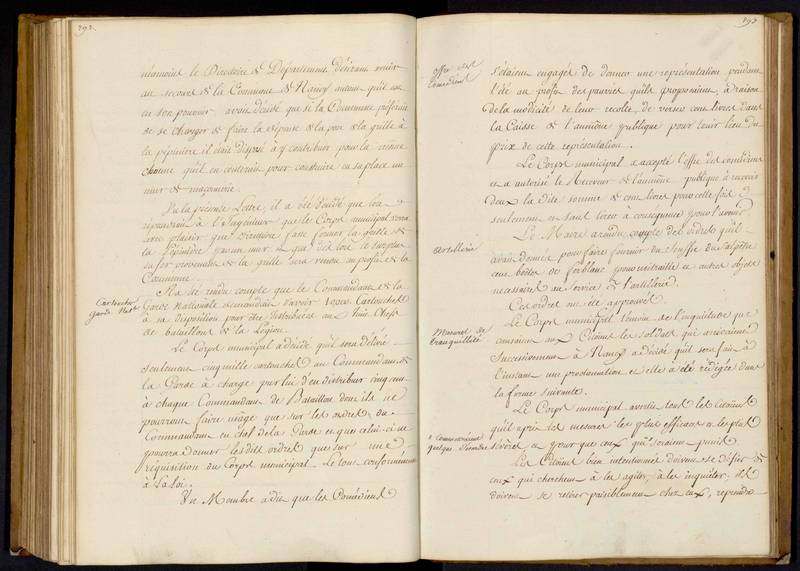 292.
néamoins le Directoire du Département désirant venir
au secours de la Commune de Nancy autant qu'il est
en son pouvoir avait décidé que si la Commune préférait
de se charger de faire la dépense de la pose de la grille à
la pépinière il était disposé à y contribuer pour la même
somme qu'il en couterait pour construire en sa place un
mur de maçonnerie.
Vu la présente Lettre, il a été décidé que l'on
répondrait à l'Ingénieur que le Corps municipal verra
avec plaisir que Directoire fasse fermer la grille de
la Pépinière par un mur & que dès lors le surplus
du fer provenant de la grille sera vendu au profit de la
Commune.
Cartouches
Garde Nat.le
Il a été rendu compte que le Commandant de la
Garde Nationale demandait d'avoir 10000 Cartouches
à sa disposition pour être distribuées aux huit Chefs
de bataillons de la Légion.
Le Corps municipal a décidé qu'il sera délivré
seulement cinq mille cartouches au Commandant de
la Garde à charge par lui d'en distribuer cinq cent
à chaque Commandant de Bataillon dont ils ne
pourront faire usage que sur les ordres du
Commandant en chef de la Garde et que celui-ci ne
pourra donner lesdits ordres que sur une
réquisition du Corps municipal. Le tout conformément
à la Loi.
Un Membre a dit que les Comédiens
293.
offre des
Comédiens
s'étaient engagés de donner une représentation pendant
l'été au profit des pauvres qu'ils proposaient à raison
de la modicité de leur recette de verser cent livres dans
la Caisse de l'aumône publique pour tenir lieu du
prix de cette représentation.
Le Corps municipal a accepté l'offre des comédiens
et a autorisé le Receveur de l'aumône publique à recevoir
d'eux la dite somme de cent livres pour cette fois
seulement et sans tirer à conséquence pour l'avenir.
Artillerie
Le Maire a rendu compte des ordres qu'il
avait donnés pour faire fournir du souffre du salpêtre
aux boëtes de fer blanc pour mitraille et autres objets
nécessaires au service de l'artillerie.
Ces ordres ont été approuvés.
Mesures de
tranquillité
Le Corps municipal témoin de l'inquiétude que
causaient aux Citoiens les soldats qui arrivaient
successivement à Nancy a décidé qu'il sera fait à
l'instant une proclamation et elle a été rédigée dans
la forme suivante.
Le Corps municipal avertit tous les Citoiens
qu'il a pris des mesures les plus efficaces et les plus
sévères et pour que ceux qui seraient punis.
Les Citoiens bien intentionnés doivent se défier de
ceux qui cherchent à les agiter, à les inquiéter. Ils
doivent se retirer paisiblement chez eux, reprendre